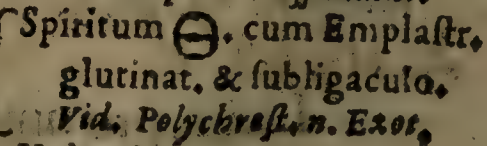 Spiritum 🜔. cum Emplaſtr.
glutinat. & ſubligaculo.
Vid. Polychreſt. n. Exot.